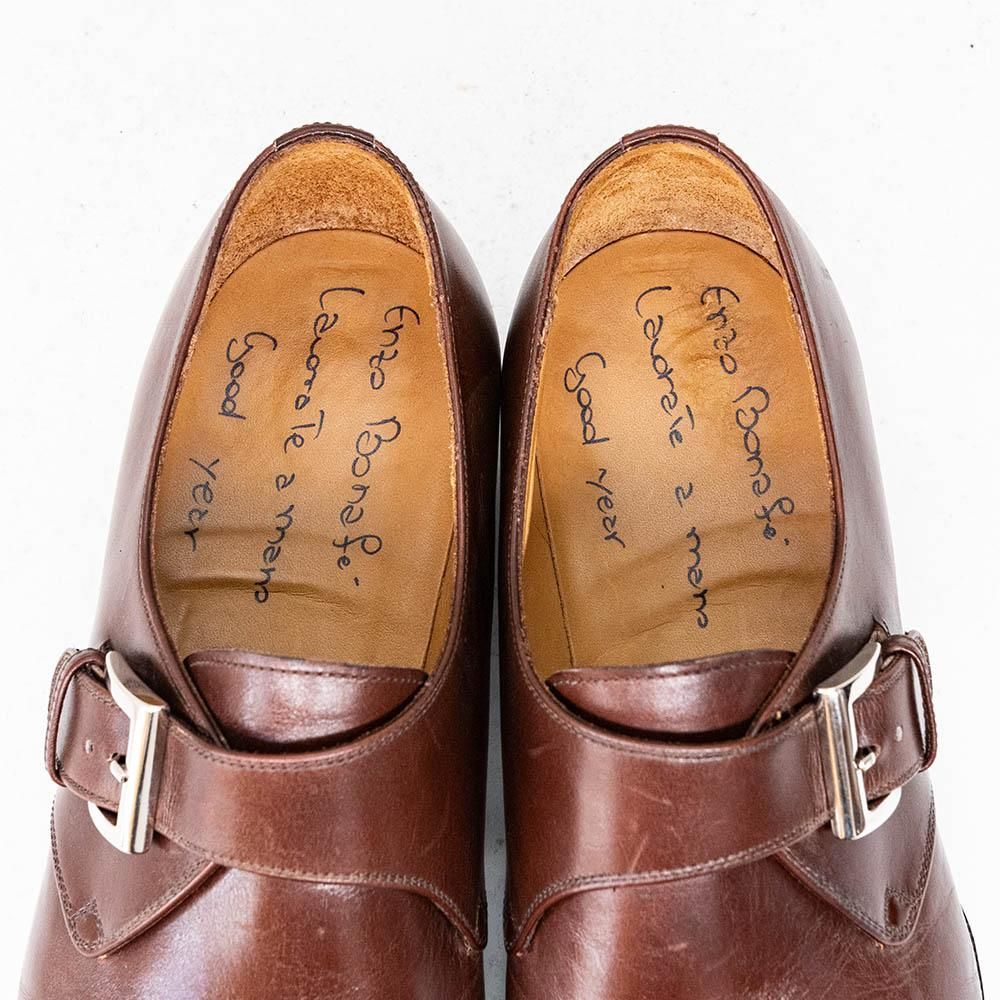 Enzo Bonafé
Lavorate a mano
Good year
Enzo Bonafé
Lavorate a mano
Good year